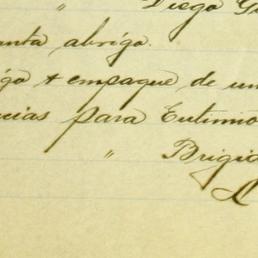 " Diego G
anta abrigo.
igo + empaque de un
cias para Eutimio
" Brigid